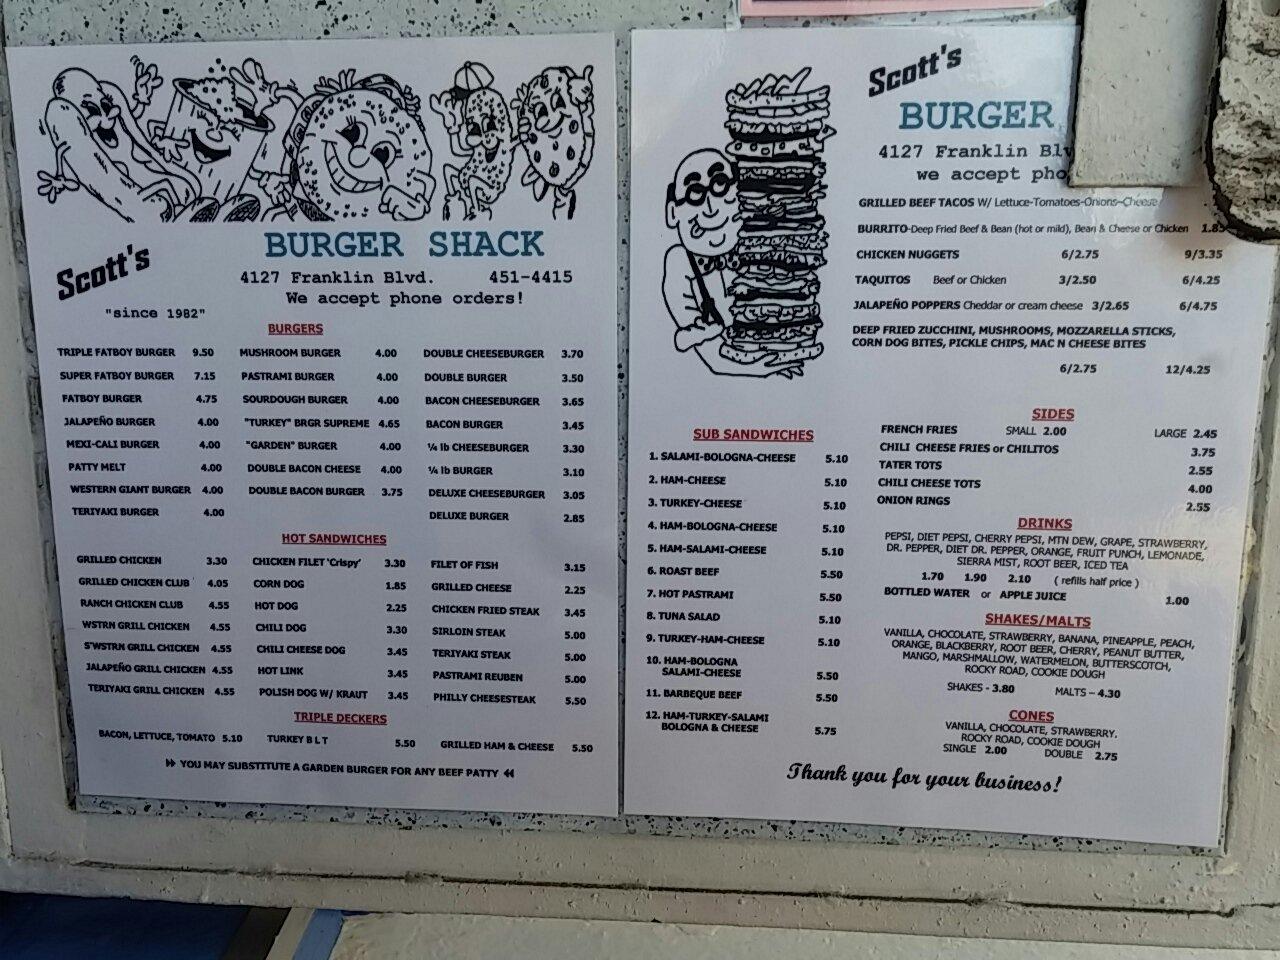 Scott's
BURGER SHACK
4127 Franklin Blvd. 451-4415
We accept phone orders!
"since 1982"
BURGERS
TRIPLE FATBOY BURGER 9.50 MUSHROOM BURGER 4.00 DOUBLE CHEESEBURGER 3.70
SUPER FATBOY BURGER 7.15 PASTRAMI BURGER 4.00 DOUBLE BURGER 3.50
FATBOY BURGER 4.75 SOURDOUGH BURGER 4.00 BACON CHEESEBURGER 3.65
JALAPEÑO BURGER 4.00 "TURKEY" BRGR SUPREME 4.65 BACON BURGER 3.45
MEXI-CALI BURGER 4.00 "GARDEN" BURGER 4.00 ¼ lb CHEESEBURGER 3.30
PATTY MELT 4.00 DOUBLE BACON CHEESE 4.00 ¼ lb BURGER 3.10
WESTERN GIANT BURGER 4.00 DOUBLE BACON BURGER 3.75 DELUXE CHEESEBURGER 3.05
TERIYAKI BURGER 4.00 DELUXE BURGER 2.85
HOT SANDWICHES
GRILLED CHICKEN 3.30 CHICKEN FILET 'Crispy' 3.30 FILET OF FISH 3.15
GRILLED CHICKEN CLUB 4.05 CORN DOG 1.85 GRILLED CHEESE 2.25
RANCH CHICKEN CLUB 4.55 HOT DOG 2.25 CHICKEN FRIED STEAK 3.45
WSTRN GRILL CHICKEN 4.55 CHILI DOG 3.30 SIRLOIN STEAK 5.00
S'WSTRN GRILL CHICKEN 4.55 CHILI CHEESE DOG 3.45 TERIYAKI STEAK 5.00
JALAPEÑO GRILL CHICKEN 4.55 HOT LINK 3.45 PASTRAMI REUBEN 5.00
TERIYAKI GRILL CHICKEN 4.55 POLISH DOG W/ KRAUT 3.45 PHILLY CHEESESTEAK 5.50
TRIPLE DECKERS
BACON, LETTUCE, TOMATO 5.10 TURKEY B L T 5.50 GRILLED HAM & CHEESE 5.50
YOU MAY SUBSTITUTE A GARDEN BURGER FOR ANY BEEF PATTY
Scott's
BURGER
4127 Franklin
we accept
GRILLED BEEF TACOS W/ Lettuce-Tomatoes-Onions-Cheese
BURRITO-Deep Fried Beef & Bean (hot or mild), Bean & Cheese or Chicken 1.85
CHICKEN NUGGETS 6/2.75 9/3.35
TAQUITOS Beef or Chicken 3/2.50 6/4.25
JALAPEÑO POPPERS Cheddar or cream cheese 3/2.65 6/4.75
DEEP FRIED ZUCCHINI, MUSHROOMS, MOZZARELLA STICKS,
CORN DOG BITES, PICKLE CHIPS, MAC N CHEESE BITES
6/2.75 12/4.25
SUB SANDWICHES
1. SALAMI-BOLOGNA-CHEESE 5.10
2. HAM-CHEESE 5.10
3. TURKEY-CHEESE 5.10
4. HAM-BOLOGNA-CHEESE 5.10
5. HAM-SALAMI-CHEESE 5.10
6. ROAST BEEF 5.50
7. HOT PASTRAMI 5.50
8. TUNA SALAD 5.10
9. TURKEY-HAM-CHEESE 5.10
10. HAM-BOLOGNA
SALAMI-CHEESE 5.50
11. BARBEQUE BEEF 5.50
12. HAM-TURKEY-SALAMI
BOLOGNA & CHEESE 5.75
SIDES
FRENCH FRIES SMALL 2.00 LARGE 2.45
CHILI CHEESE FRIES or CHILITOS 3.75
TATER TOTS 2.55
CHILI CHEESE TOTS 4.00
ONION RINGS 2.55
DRINKS
PEPSI, DIET PEPSI, CHERRY PEPSI, MTN DEW, GRAPE, STRAWBERRY,
DR. PEPPER, DIET DR. PEPPER, ORANGE, FRUIT PUNCH, LEMONADE,
SIERRA MIST, ROOT BEER, ICED TEA
1.70 1.90 2.10 ( refills half price )
BOTTLED WATER or APPLE JUICE 1.00
SHAKES/MALTS
VANILLA, CHOCOLATE, STRAWBERRY, BANANA, PINEAPPLE, PEACH,
ORANGE, BLACKBERRY, ROOT BEER, CHERRY, PEANUT BUTTER,
MANGO, MARSHMALLOW, WATERMELON, BUTTERSCOTCH,
ROCKY ROAD, COOKIE DOUGH
SHAKES - 3.80 MALTS – 4.30
CONES
VANILLA, CHOCOLATE, STRAWBERRY.
ROCKY ROAD, COOKIE DOUGH
SINGLE 2.00 DOUBLE 2.75
Thank you for your business!